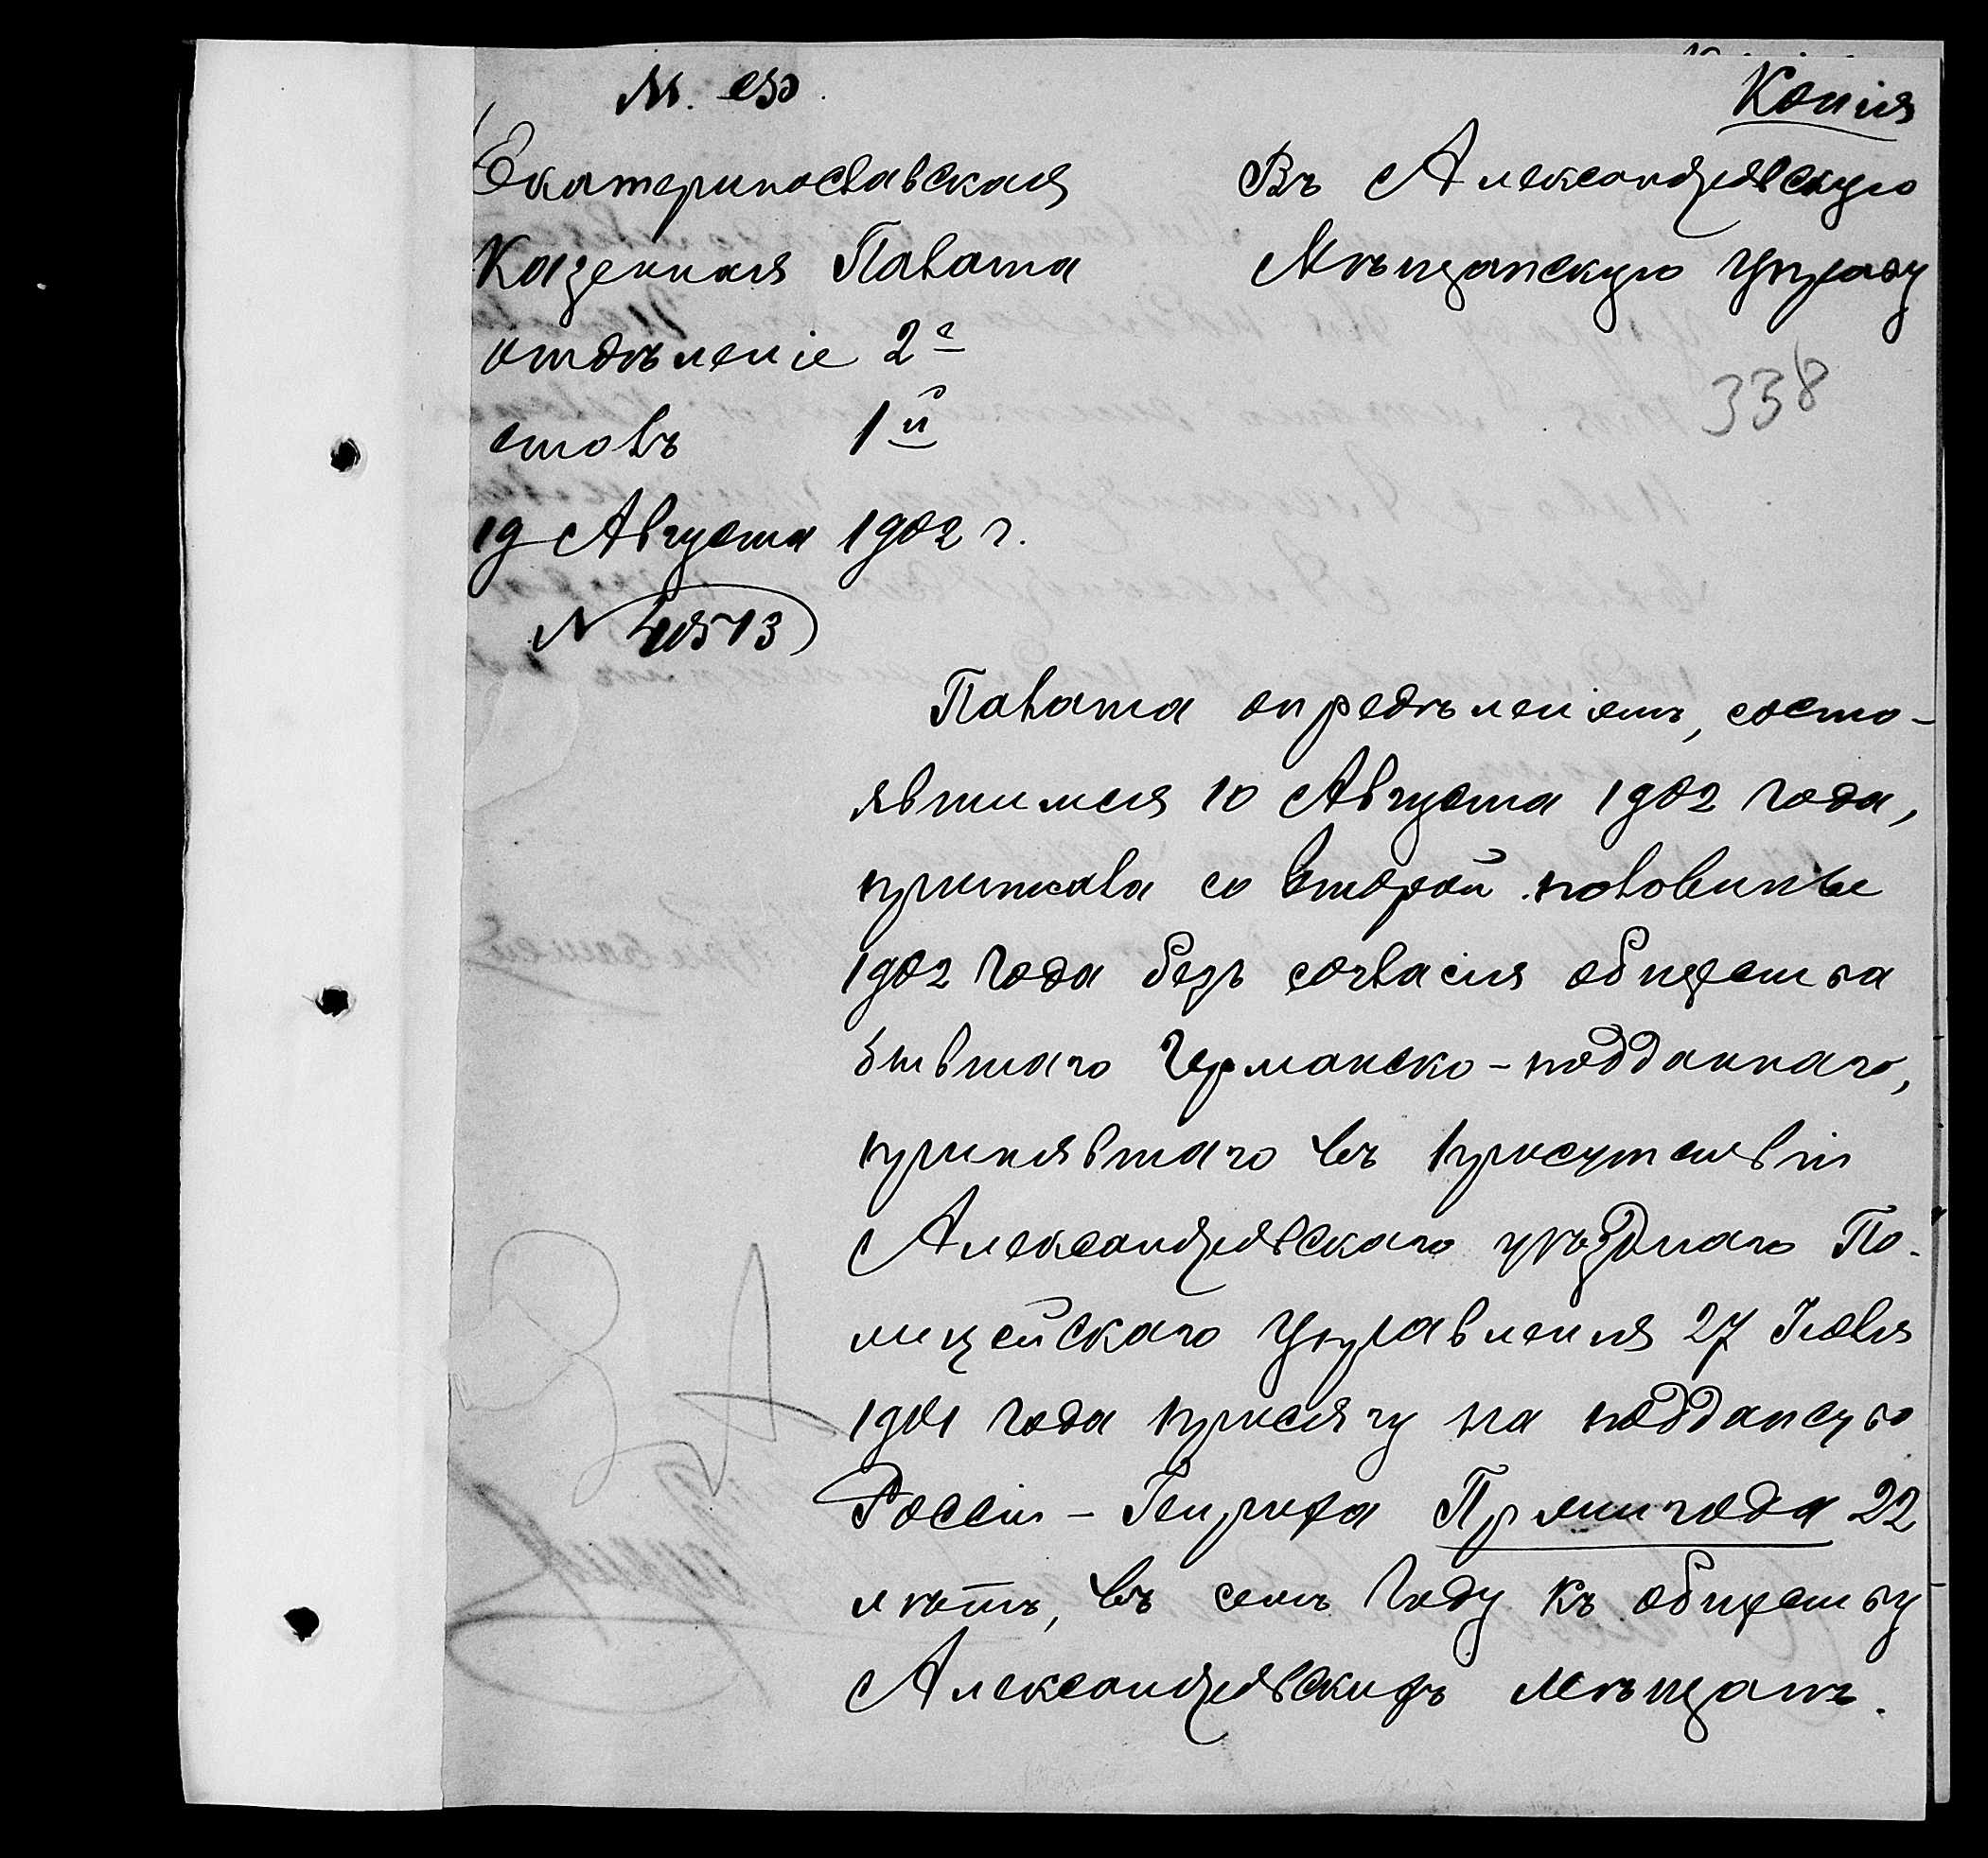 М. Ф.
Копія
Екатеринославская
Казенная Палата
отдѣленіе 2е
столъ 1й
19 Августа 1902 г.
Въ Александровскую
Мѣщанскую Управу
338
Палата опредѣленіемъ, состо-
явшимся 10 Августа 1902 года,
причислила со второй половины
1902 года безъ согласія общества
бывшаго Германско-подданнаго,
принявшаго въ присутствіи
Александровскаго уѣзднаго По-
лицейскаго Управленія 27 Іюля
1901 года присягу на подданство
Россіи – Генриха 22
лѣтъ, въ семъ году къ обществу
Александровскихъ мѣщанъ.